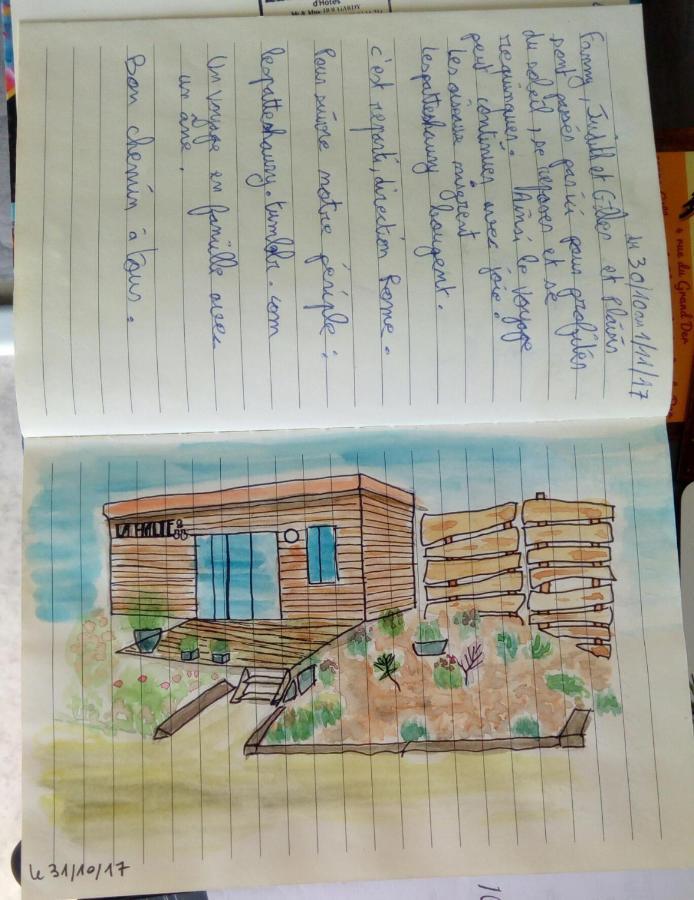 du 30/10 au 1/11/17
Fanny, Judith et Gilles et Plùm
sont passés par ici pour profiter
du soleil, se reposer et se
requinquer. Ainsi le voyage
peut continuer avec joie !
Les oiseaux migrent
lespatteshaury bougent.
c'est reparti, direction Rome.
Pour suivre notre périple :
lespatteshaury.tumblr.com
Un voyage en famille avec
un âne.
Bon chemin à tous.
LA HALTE
le 31/10/17
d'Hôtes
4 rue du Grand